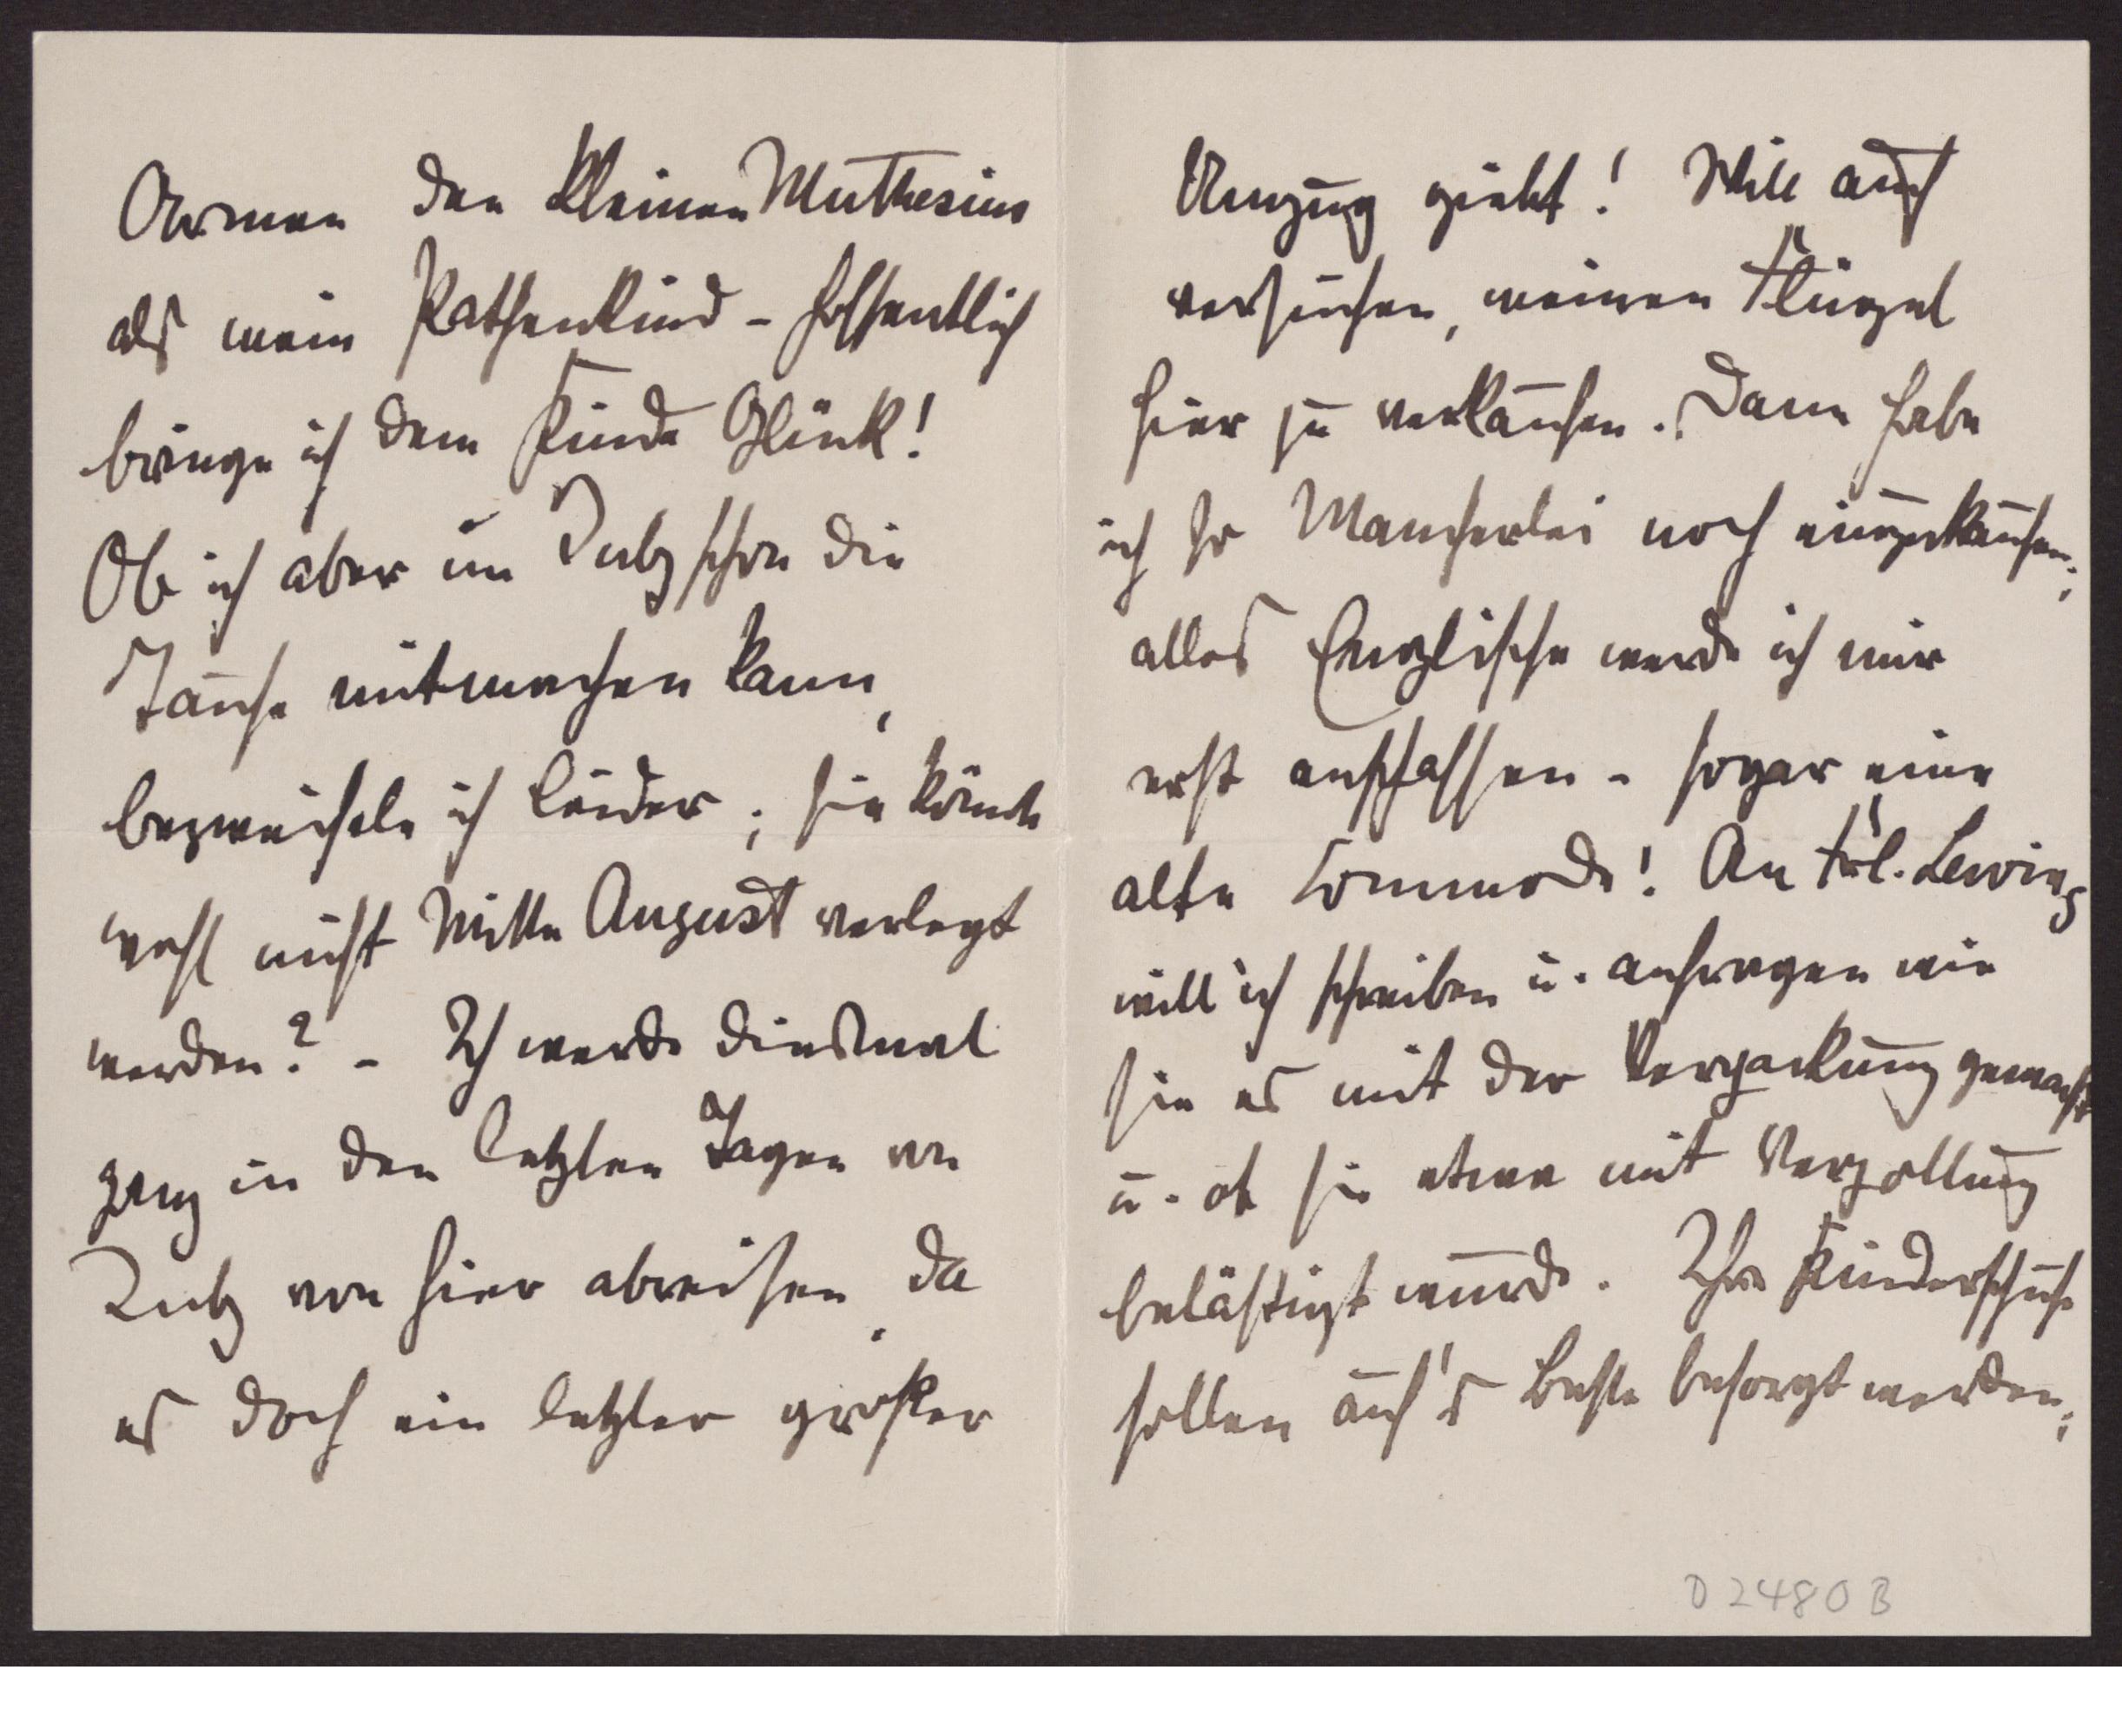 Armen den kleinen Muthesius
als mein Pathenkind - hoffentlich
bringe ich dem Kinde Glück!
Ob ich aber im July schon die
Taufe mitmachen kann,
bezweifele ich leider; sie könnte
wohl nicht Mitte August verlegt
werden? - Ich werde diesmal
ganz in den letzten Tagen von
July von hier abreisen, da
es doch ein letzter großer
Umzug giebt! Will auch
versuchen, meinen Flügel
hier zu verkaufen. Dann habe
ich so Mancherlei noch einzukaufen;
alles Englische werde ich mir
erst anschaffen - sogar eine
alte Commode! An Frl.
will ich schreiben u. anfragen wie
sie es mit der Verpackung gemacht
u. ob sie etwa mit Verzollung
belästigt wurde. Ihre Kinderschuhe
sollen auf's Beste besorgt werden;
D 2480 B